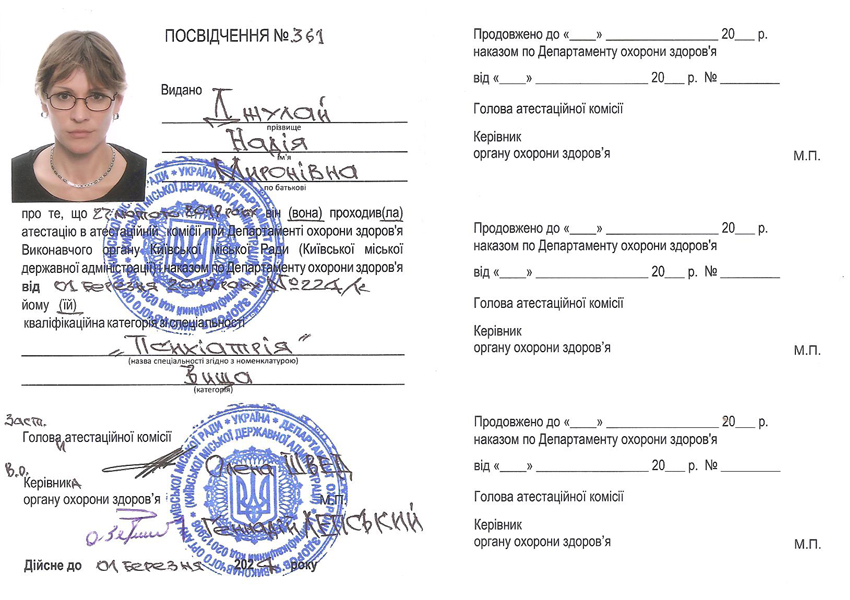 ПОСВІДЧЕННЯ № 361
Видано
Джулай
прізвище
Надія
ім'я
Миронівна
по батькові
про те, що 27 лютого 2019 року він (вона) проходив(ла)
атестацію в атестаційній комісії при Департаменті охорони здоров'я
Виконавчого органу Київської міської Ради (Київської міської
державної адміністрації) і наказом по Департаменту охорони здоров'я
від 01 березня 2019 року № 224/к
йому (їй)
кваліфікаційна категорія зі спеціальності
„Психіатрія"
(назва спеціальності згідно з номенклатурою)
Вища
(категорія)
Заст.
Голови атестаційної комісії
Олена ШВЕД
В.о.
Керівника
органу охорони здоров'я
М.П.
Дійсне до 01 березня 2024 року
Продовжено до «____» ________________ 20___ р.
наказом по Департаменту охорони здоров'я
від «____» ________________ 20___ р. № _________
Голова атестаційної комісії
Керівник
органу охорони здоров'я
М.П.
Продовжено до «____» ________________ 20___ р.
наказом по Департаменту охорони здоров'я
від «____» ________________ 20___ р. № _________
Голова атестаційної комісії
Керівник
органу охорони здоров'я
М.П.
Продовжено до «____» ________________ 20___ р.
наказом по Департаменту охорони здоров'я
від «____» ________________ 20___ р. № _________
Голова атестаційної комісії
Керівник
органу охорони здоров'я
М.П.